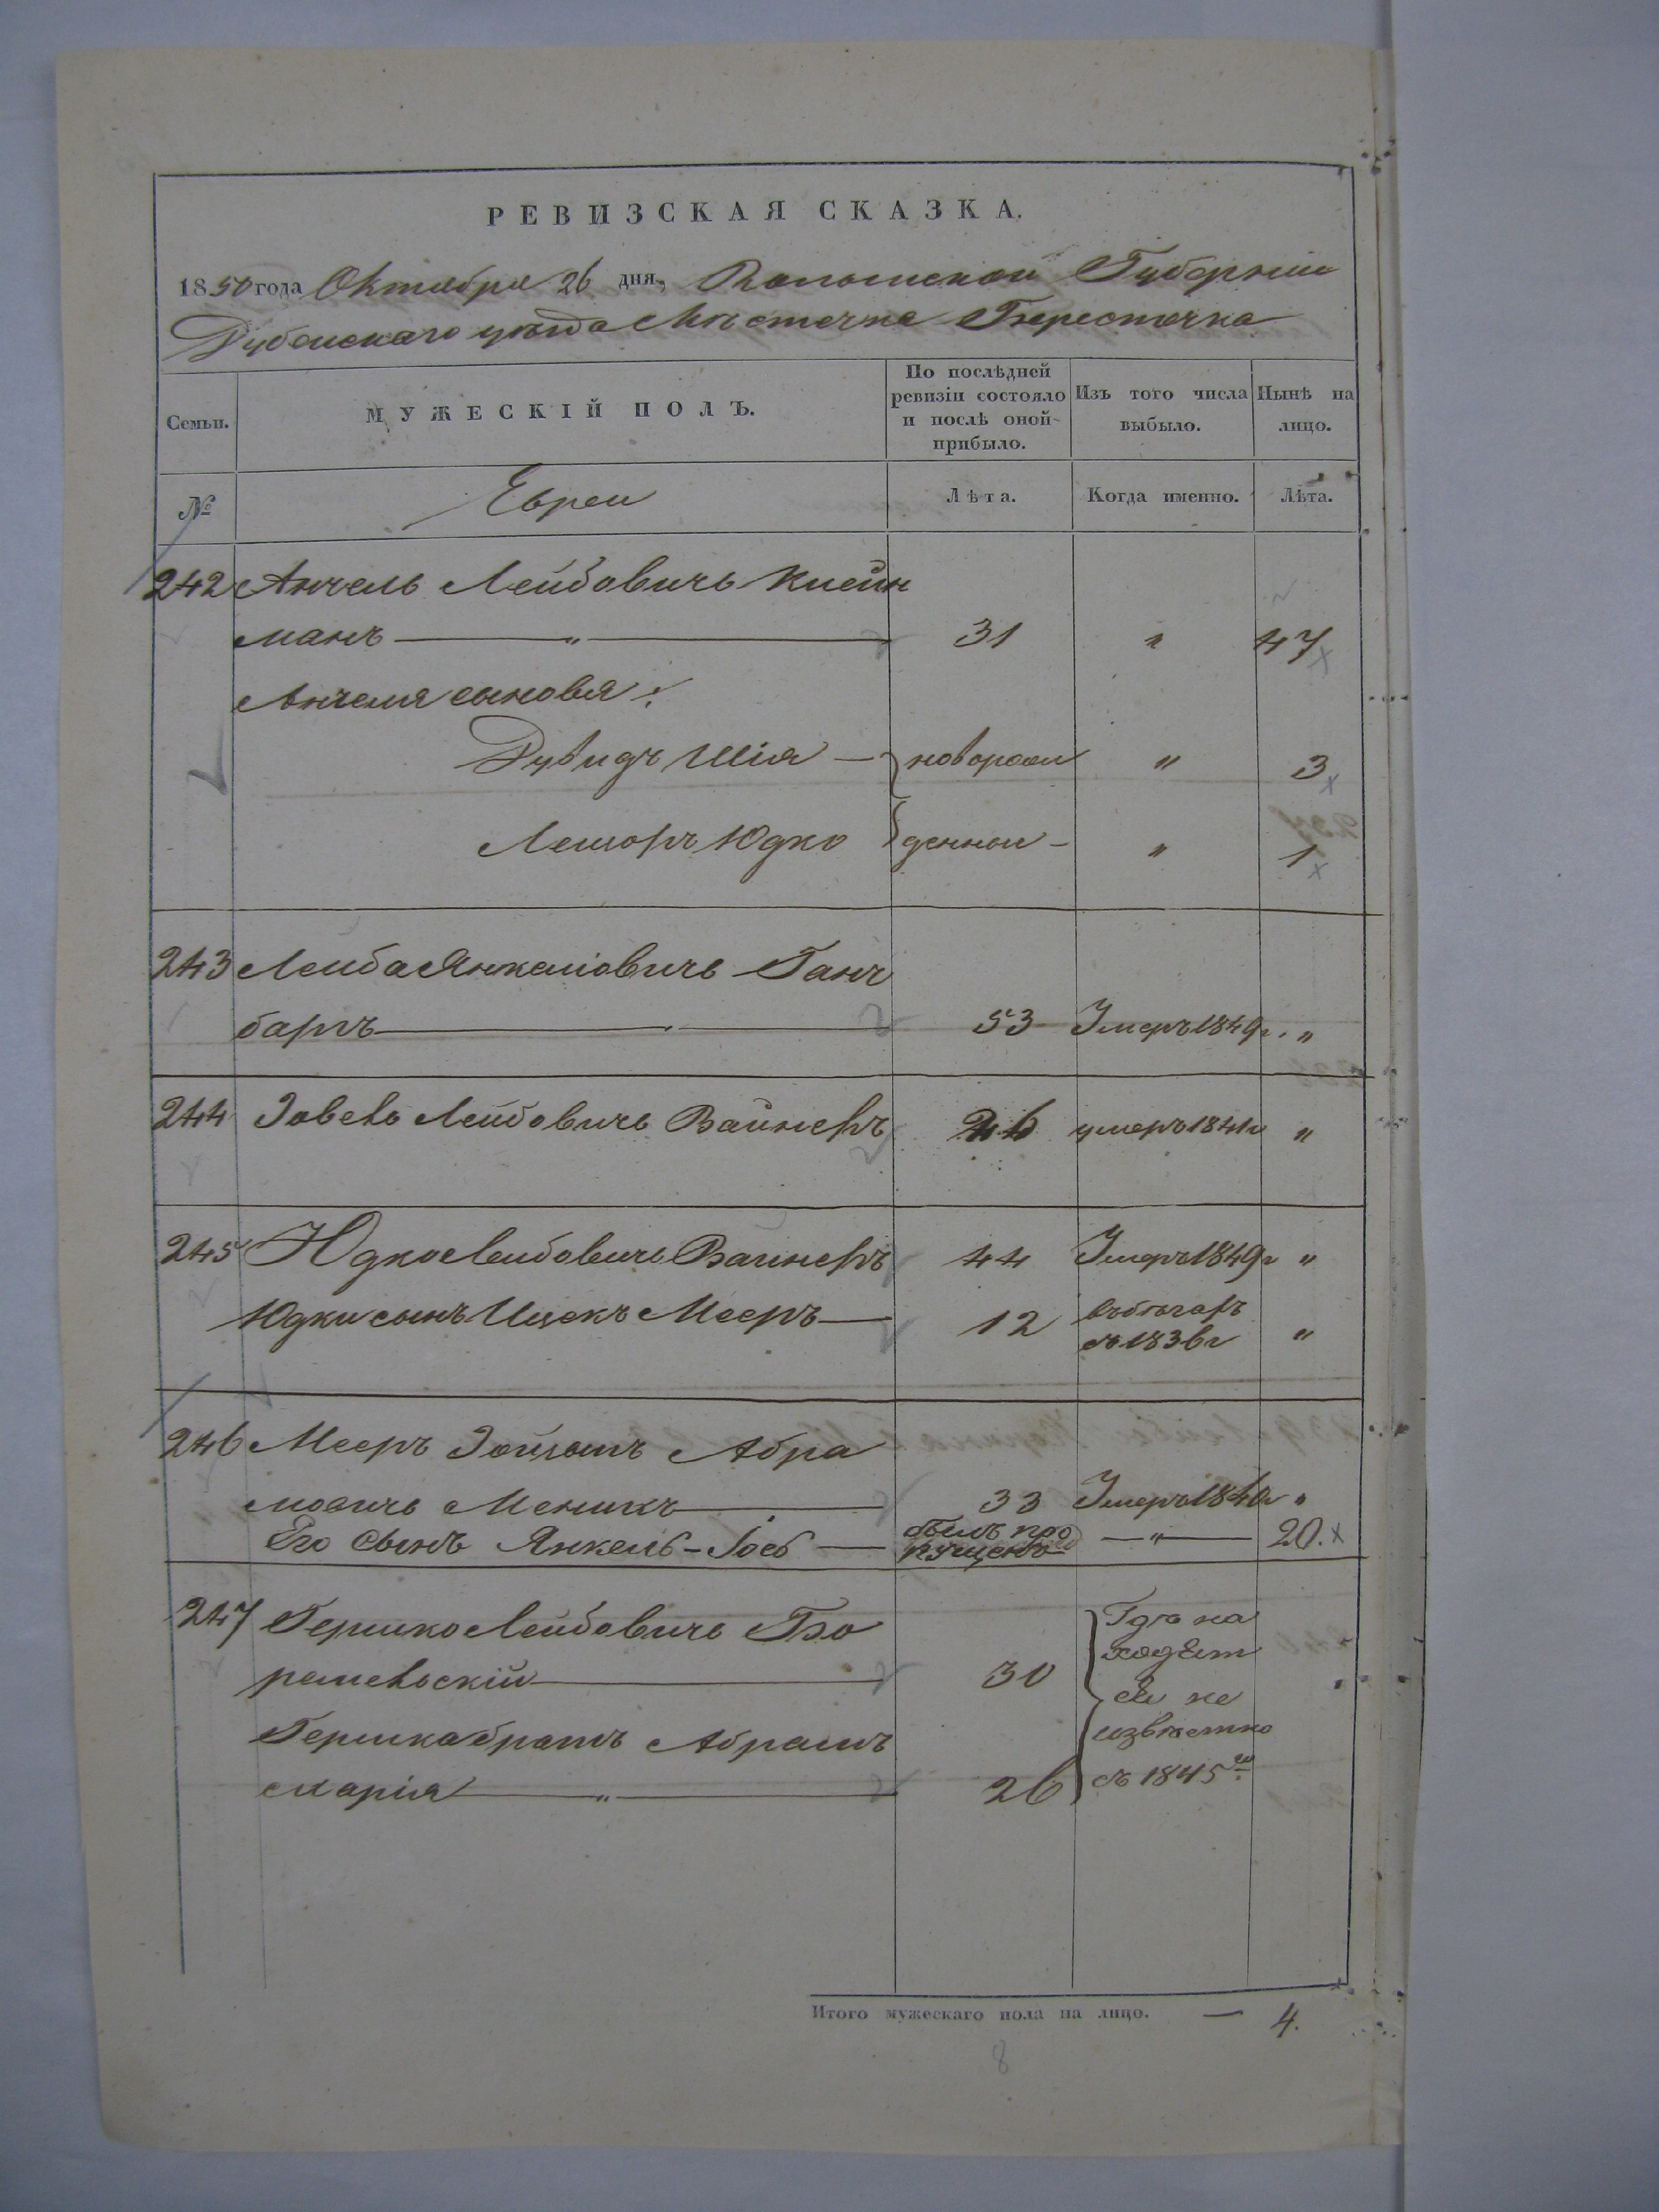 РЕВИЗСКАЯ СКАЗКА.
1850 года Октября 26 дня, Волынской Губернии
Дубенскаго уѣзда Мѣстечка Берестечка
Семьи.
МУЖЕСКІЙ ПОЛЪ.
По послѣдней ревизіи состояло и послѣ оной прибыло.
Изъ того числа выбыло.
Нынѣ на лицо.
№
Евреи
Лѣта.
Когда именно.
Лѣта.
242 Анчель Лейбовичъ Клейн
манъ — " — 31 " 47
Анчеля сыновья:
Шія — новорож " 3
Юдко денныи — " 1
243 Лейба Янкеліовичъ Ганч
баргъ — 53 Умеръ 1849 г. "
244 Лейбовичъ Вайнеръ умеръ 1841 г "
245 Юдко Лейбовичъ Вайнеръ 44 Умеръ 1849 г "
Юдки сынъ Ицекъ Мееръ — 12
съ 1836 г "
246 Мееръ Абра
мовичъ — 33 Умеръ "
Его Сынъ Янкель-Іось — былъ про
пущенъ — " — 20.
247 Гершко Лейбовичъ Бо
30
Гдѣ на
ходит
ся не
извѣстно
съ 1845 го
Гершка братъ Абрамъ
— " — 26
Итого мужескаго пола на лицо. — 4.
8